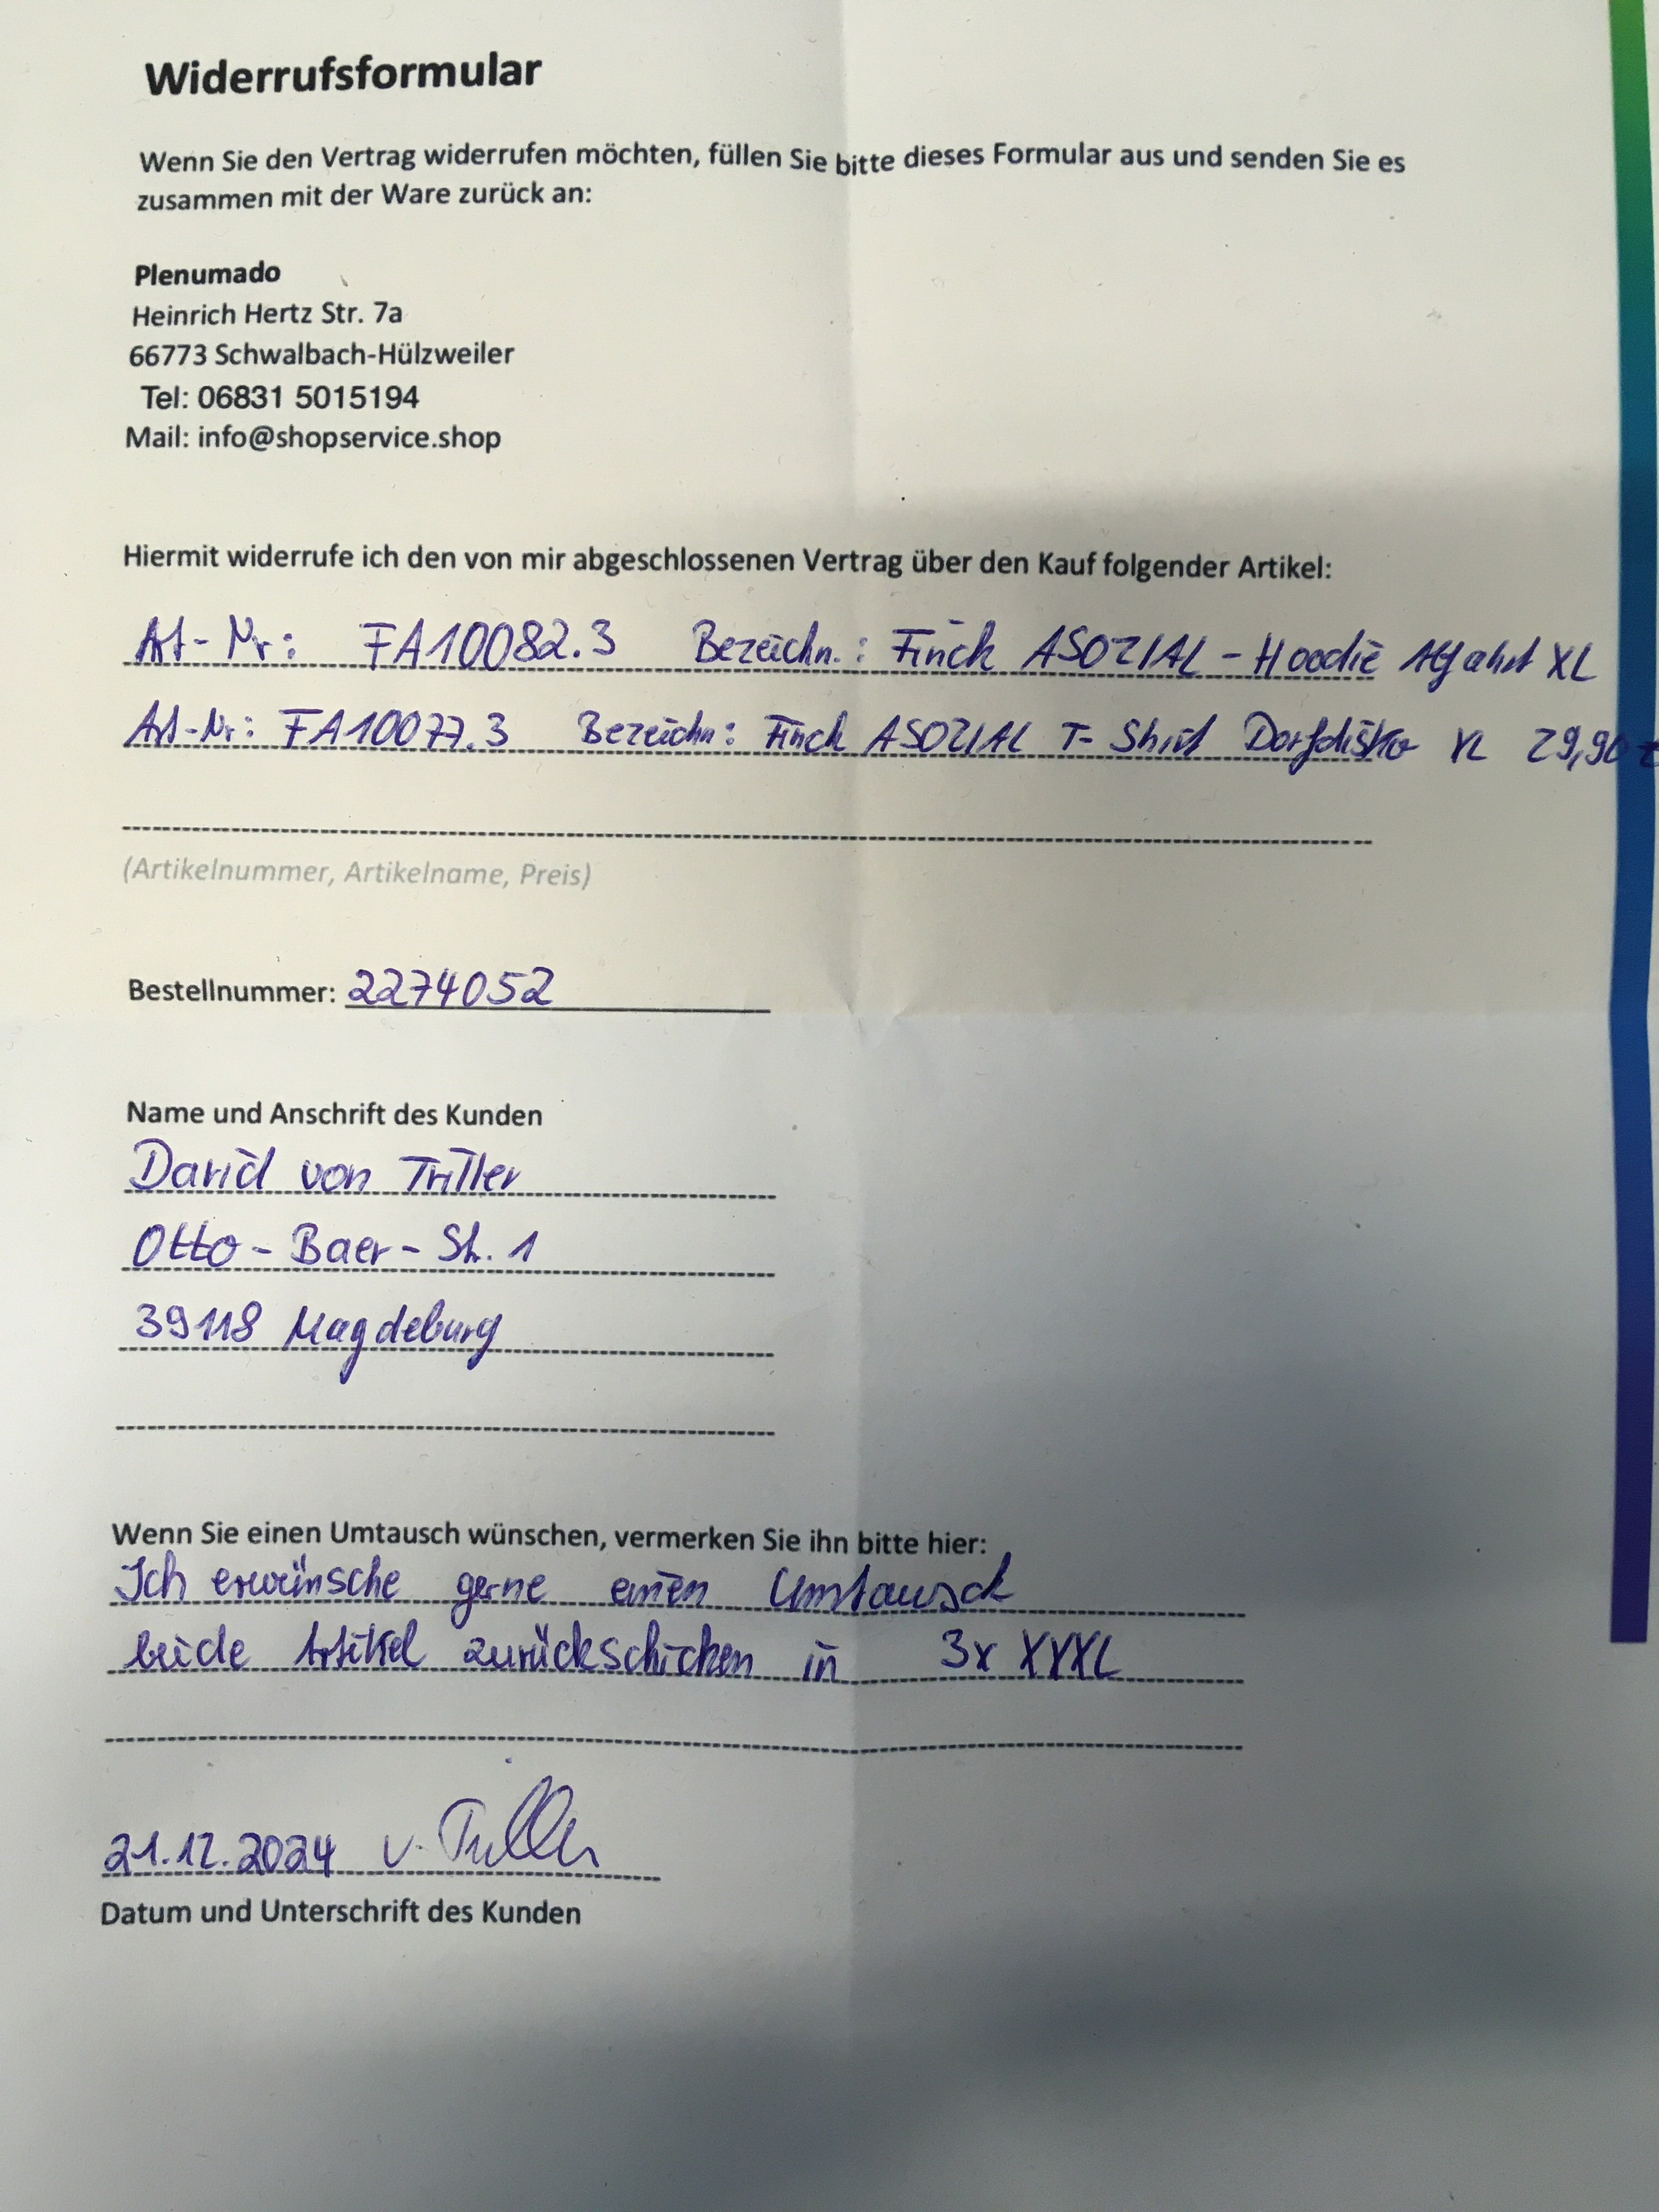 Widerrufsformular
Wenn Sie den Vertrag widerrufen möchten, füllen Sie bitte dieses Formular aus und senden Sie es
zusammen mit der Ware zurück an:
Plenumado
Heinrich Hertz Str. 7a
66773 Schwalbach-Hülzweiler
Tel: 06831 5015194
Mail: info@shopservice.shop
Hiermit widerrufe ich den von mir abgeschlossenen Vertrag über den Kauf folgender Artikel:
Art-Nr: FA10082.3 Bezeichn.: Finch ASOZIAL - Hoodie Abfahrt XL
Art-Nr: FA10077.3 Bezeichn: Finch ASOZIAL T-Shirt Dorfdisko XL 29,90 €
(Artikelnummer, Artikelname, Preis)
Bestellnummer: 2274052
Name und Anschrift des Kunden
David von Triller
Otto-Baer-Str. 1
39118 Magdeburg
Wenn Sie einen Umtausch wünschen, vermerken Sie ihn bitte hier:
Ich erwünsche gerne einen Umtausch
beide Artikel zurückschicken in 3x XXXL
21.12.2024 v. Triller
Datum und Unterschrift des Kunden